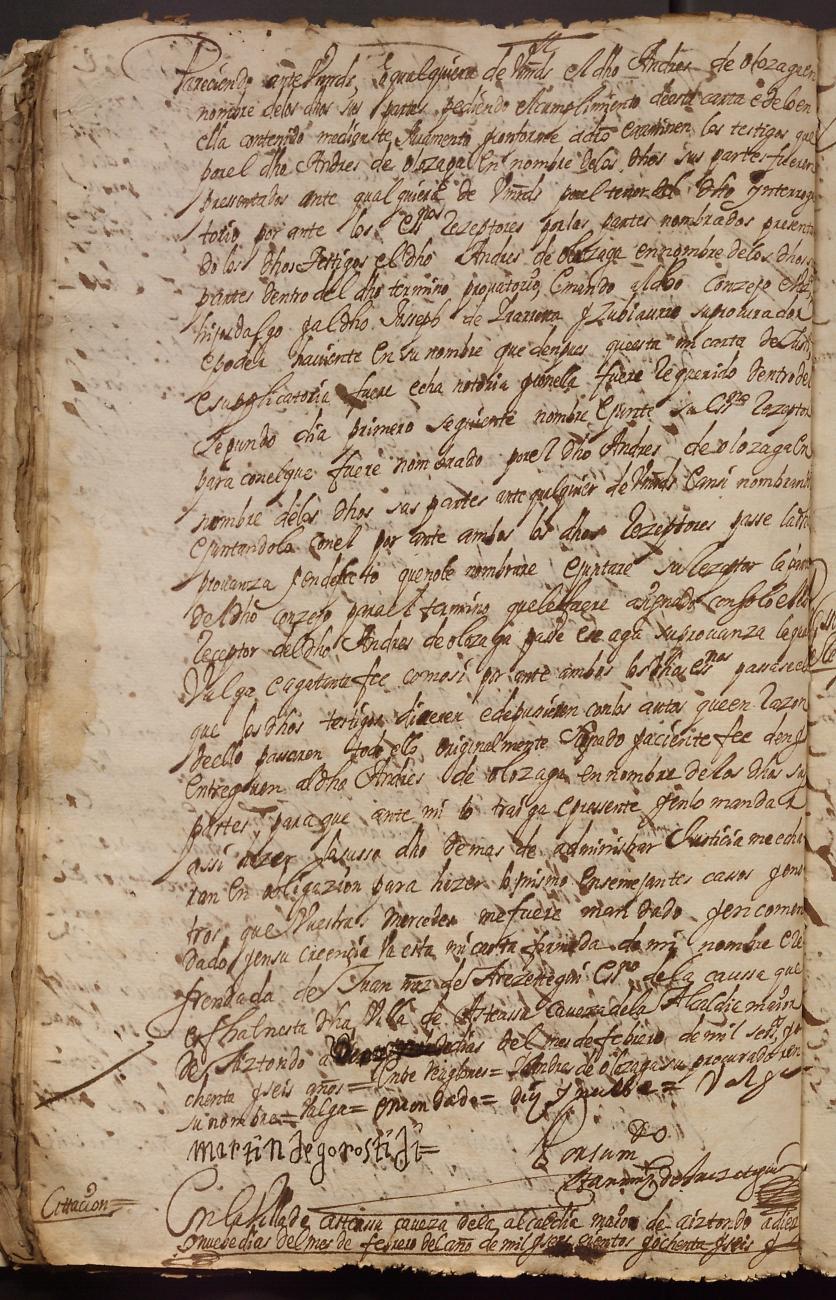 Pareciendo ante Vmds, E qualquiera de Vmds el dho Andres de olozaga en
nombre de los dhos sus partes pediendo el cumplimiento de esta carta e de lo en
ella contenido mediante Juramento y conforme a dro examinen los testigos que
por el dho Andres de olozaga En nombre de los dhos sus partes fueren
pressentados ante qualquiera de Vmds por el tenor del dho ynterroga
torio por ante los essnos Rezeptores por las partes nombrados presenta
do los dhos testigos el dho Andres de olozaga en nombre de los dhos sus
partes dentro del dho termino provatorio, E mando al dho Conzejo
hijosdalgo y al dho Joseph de y Zubiaurre su procurador
e poder haviente en su nombre que despues que esta mi carta de Justa
e suplicatoria fuere echa notoria y con ella fuere Requerido dentro del
segundo dia primero seguiente nombre E junte su essno Rezeptor
para con el que fuere nombrado por el dho Andres de olozaga En
nombre de los dhos sus partes ante qualquier de Vmds E ansi nombrando
e juntandola con el por ante ambos los dhos Rezeptores passe la dha
provanza y en defecto que no le nombrare e juntare su Rezeptor la parte
del dho conzejo para el termino que le fuere asignado con solo el
Rezeptor del dho Andres de olozaga passe e se aga su provanza la que
Valga e aga tanta fee como si por ante ambos los dhos essnos passase e lo
que los dhos testigos dixeren e depusieren con los autos que en Razon
de ello passaren todo ello originalmente signado y aciente fee den y
entreguen al dho Andres de olozaga en nombre de los dhos sus
partes, para que ante mi lo traiga e pressente y en lo mandar
assi azer lo susso dho demas de administrar Justicia me echa
ran En obligazion para hazer lo mismo En semejantes casos y en o
tros que Vuestras Mercedes me fuere mandado y encomen
dado, y en su creencia la esta mi carta firmada de mi nombre e Re
frendada de Juan mrz de Arezeteguy Essno de la caussa que
es fha en esta dha Villa de Asteassu caveza de la Alcaldia maior
de Aiztondo a dias del mes de febrero de mil seisos y o
chenta y seis años = Entre Renglones = Andres de olozaga su procurador en
su nombre = Valga = enmendado = diez y nueve =
Martin de gorostidi =
Por su mdo
Juan mrz de Arezeteguy
Cittacion =
En la Villa de asteassu caveza de la alcaldia maior de aiztondo a diez
y nueve dias del mes de febrero del año de mil y seis cientos y ochenta y seis yo